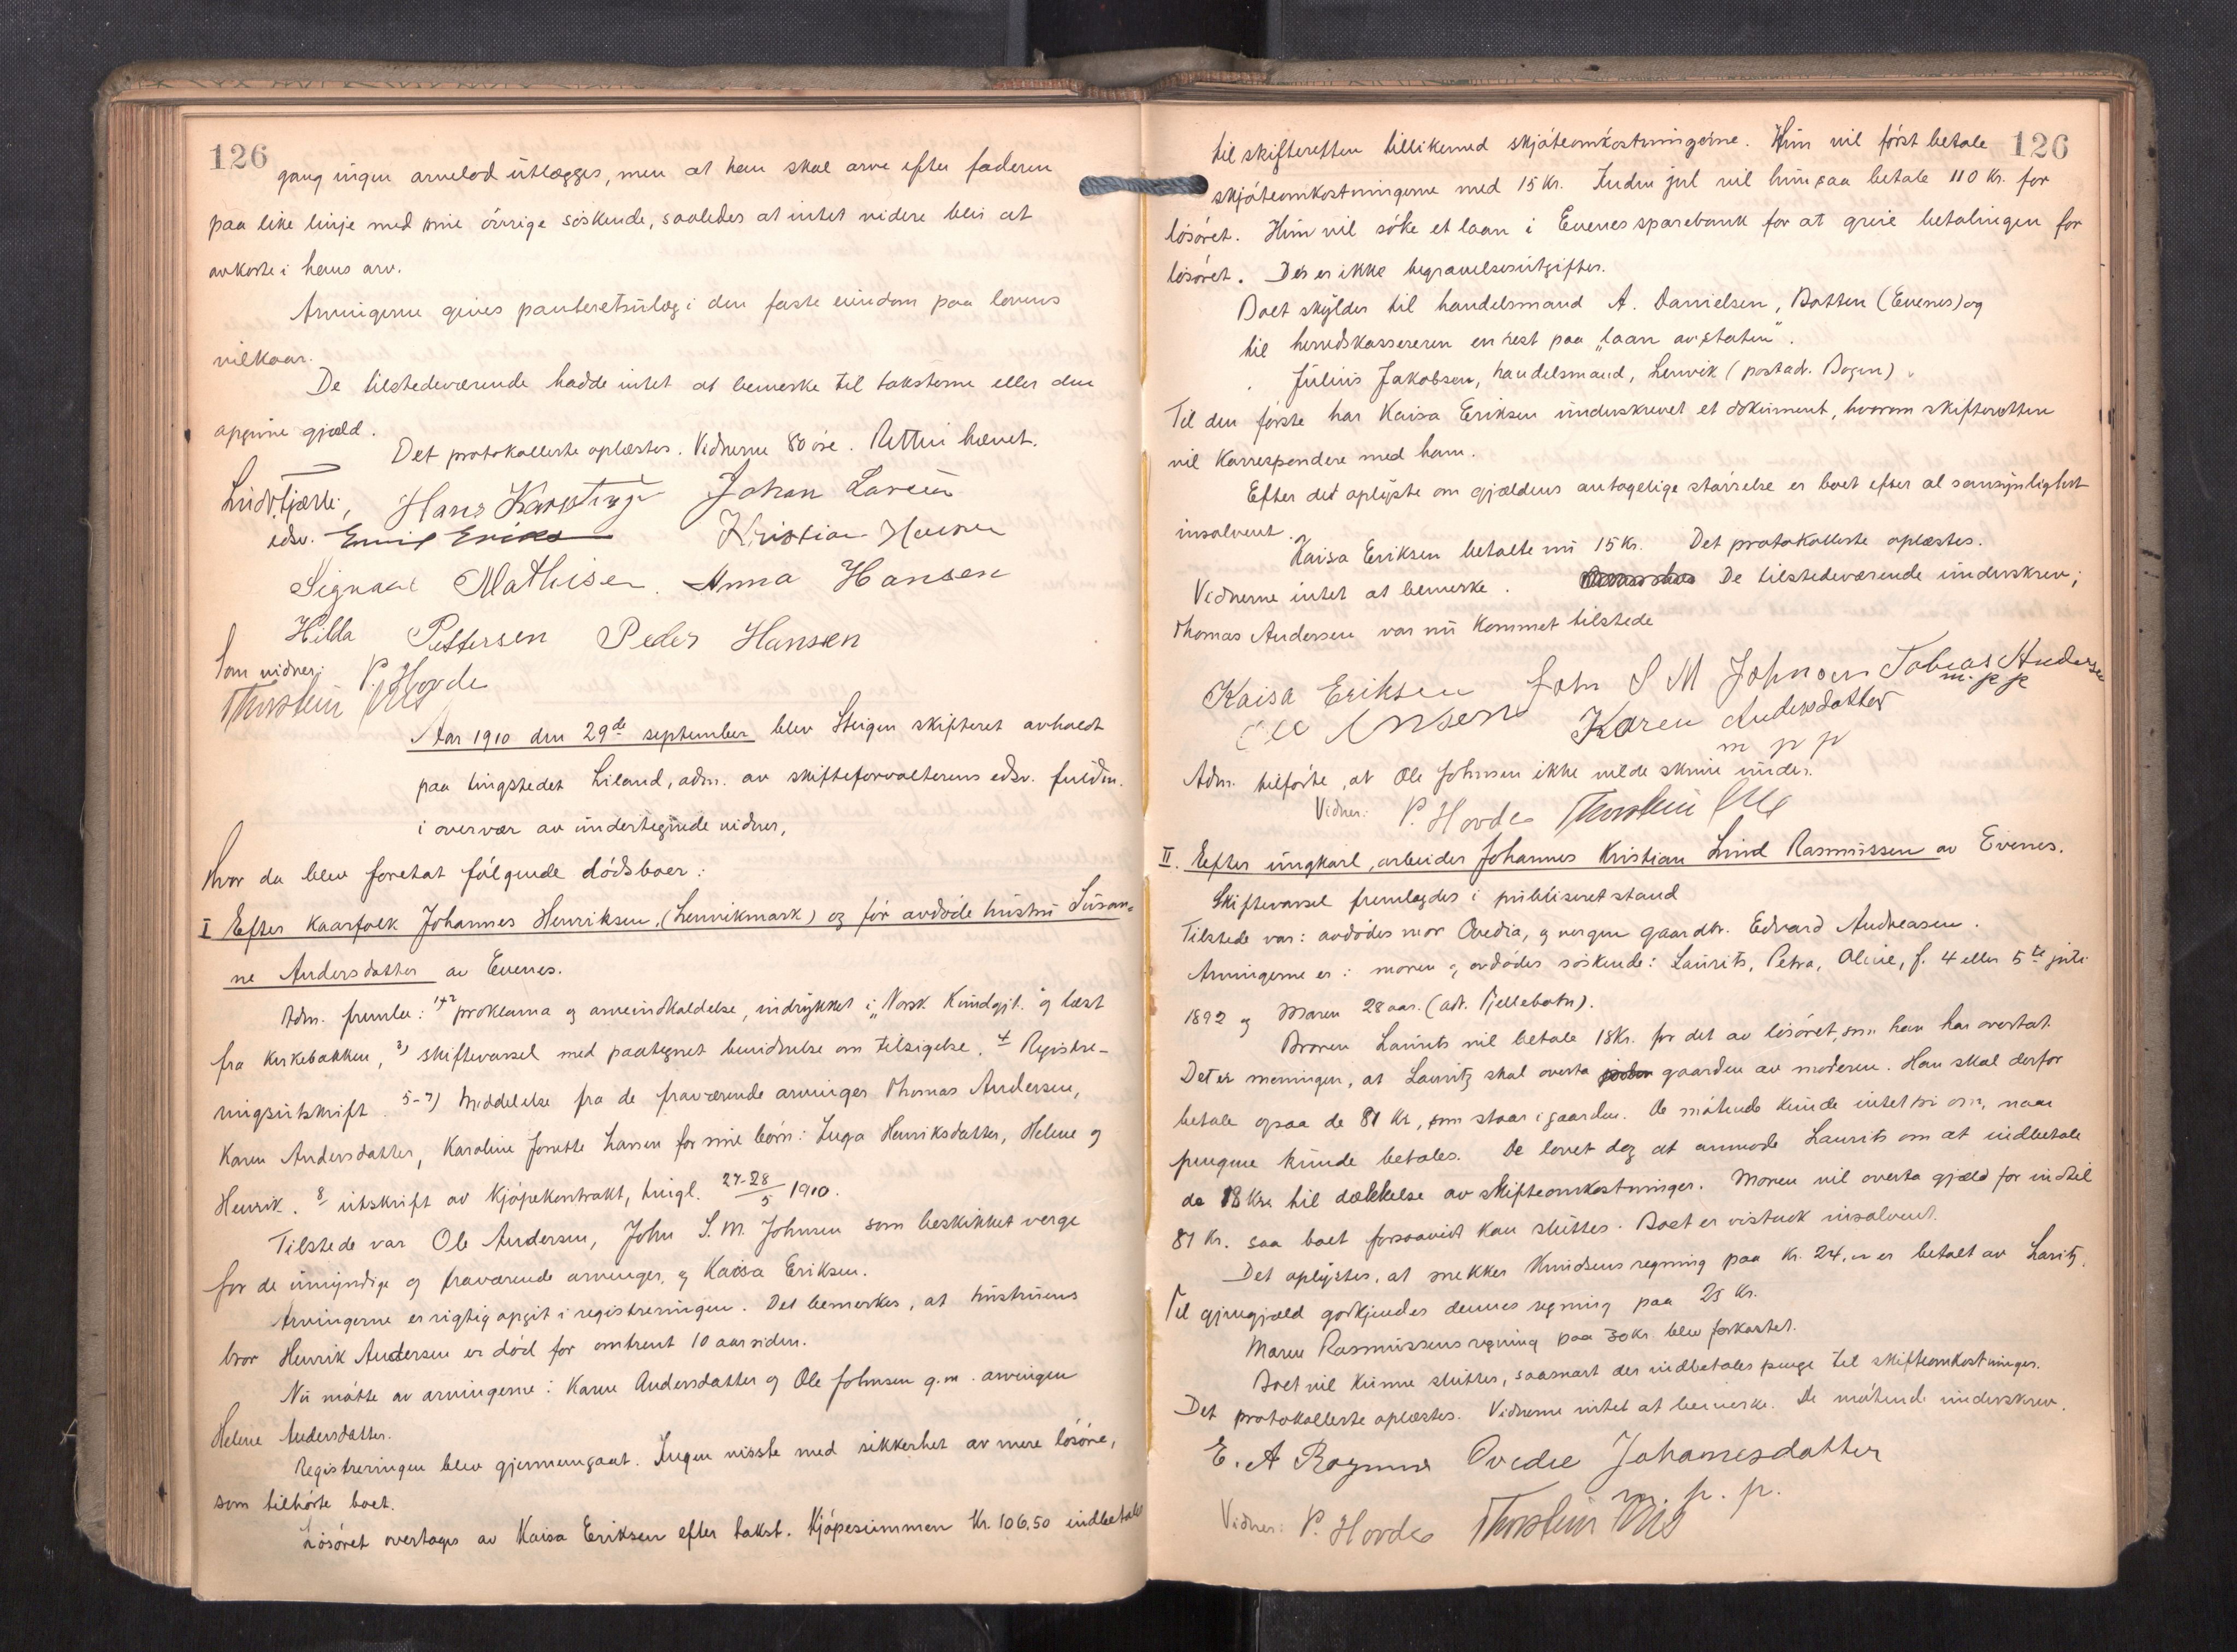 126
gang ingen arvelod utlægges, men at han skal arve efter faderen
paa like linje med sine övrige söskende, saaledes at intet videre blir at
avkorte i hans arv.
Arvingerne gives panteretsutlæg i den faste eiendom paa lovens
vilkaar.
De tilstedeværende hadde intet at bemerke til taksterne eller den
opgivne gjæld.
Det protokollerte oplæstes. Vidnerne 80 öre. Retten hævet.
Hans Johan Larsen
edsv. Emil Kristian Hansen
Signael Mathisen. Anna Hansen
Hilda Pettersen Peder Hansen
Som vidner: P. Hovde
Thorstein
Aar 1910 den 29de september blev Steigen skifteret avholdt
paa tingstedet Liland, adm. av skifteforvalterens edsv. fuldm.
i overvær av undertegnede vidner,
Hvor da blev foretat fölgende dödsboer:
I Efter kaarfolk Johannes Henriksen, (Lenvikmark) og för avdöde hustru Susan-
ne Andersdatter av Evenes.
Adm. fremla: 1+2 proklama og arveindkaldelse, indrykket i „Norsk Kundgjt. og læst
fra kirkebakken, 3) skiftevarsel med paategnet bevidnelse om tilsigelse. 4 Registre-
ringsutskrift. 5-7) Meddelelse fra de fraværende arvinger Thomas Andersen,
Karen Andersdatter, Karoline Josette Larsen for sine börn: Inga Henriksdatter, Helene og
Henrik. 8 utskrift av kjöpekontrakt, tingl. 27-28/5 1910.
Tilstede var Ole Andersen, John S. M. Johnsen som beskikket verge
for de umyndige og fraværende arvinger, og Kaisa Eriksen.
Arvingerne er rigtig opgit i registreringen. Det bemerkes, at hustruens
bror Henrik Andersen er död for omtrent 10 aar siden.
Nu mötte av arvingerne: Karen Andersdatter og Ole Johnsen g.m. arvingen
Helene Andersdatter.
Registreringen blev gjennemgaat. Ingen visste med sikkerhet av mere lösöre,
som tilhörte boet.
Lösöret overtages av Kaisa Eriksen efter takst. Kjöpesummen Kr. 106,50 indbetales
126
til skifteretten tillikemed skjöteomkostningerne. Hun vil först betale
skjöteomkostningerne med 15 kr. Inden jul vil hun saa betale 110 kr. for
lösöret. Hun vil söke et laan i Evenes sparebank for at greie betalingen for
lösöret. Der er ikke begravelsesutgifter.
Boet skylder til handelsmand A. Danielsen, Botten (Evenes) og
til herredskassereren en rest paa „laan av staten“.
Julius Jakobsen, handelsmand, Lenvik (postadr. Bogen).
Til den förste har Kaisa Eriksen underskrevet et dokument, hvorom skifteretten
vil korrespondere med ham.
Efter det oplyste om gjældens antagelige störrelse er boet efter al sansynlighet
insolvent.
Kaisa Eriksen betalte nu 15 kr. Det protokollerte oplæstes.
Vidnerne intet at bemerke. De tilstedeværende underskrev;
Thomas Andersen var nu kommet tilstede
Kaisa Eriksen John S M Johnsen Tobias Andersen
m. p p
Karen Andersdatter
m p p
Adm. tilförte, at Ole Johnsen ikke vilde skrive under.
Vidner: P. Hovde Thorstein
II. Efter ungkarl, arbeider Johannes Kristian Lund Rasmussen av Evenes.
Skiftevarsel fremlagdes i publiseret stand
Tilstede var: avdödes mor Ovedia, og vergen gaardbr. Edvard Andreasen.
Arvingerne er: moren og avdödes söskende: Laurits, Petra, Oline, f. 4 eller 5te juli
1892 og Maren 28 aar. (adr. Fjellebotn).
Broren Laurits vil betale 18 kr. for det av lösöret, som han har overtat.
Det er meningen, at Lauritz skal overta gaarden av moderen. Han skal derfor
betale ogsaa de 81 kr, som staar i gaarden. De mötende kunde intet si om, naar
pengene kunde betales. De lovet dog at anmode Laurits om at indbetale
de 18 kr. til dækkelse av skifteomkostninger. Moren vil overta gjæld for indtil
81 kr. saa boet forsaavidt kan sluttes. Boet er vistnok insolvent.
Det oplystes, at snekker Knudsens regning paa kr. 24, er betalt av Laritz.
Til gjengjæld godkjendes dennes regning paa 25 kr.
Maren Rasmussens regning paa 30 kr. blev forkastet.
Boet vil kunne sluttes, saasnart der indbetales penge til skifteomkostninger.
Det protokollerte oplæstes. Vidnerne intet at bemerke. De mötende underskrev.
E. A Ovedie Johanesdatter
m. p. p.
Vidner: P. Hovde Thorstein